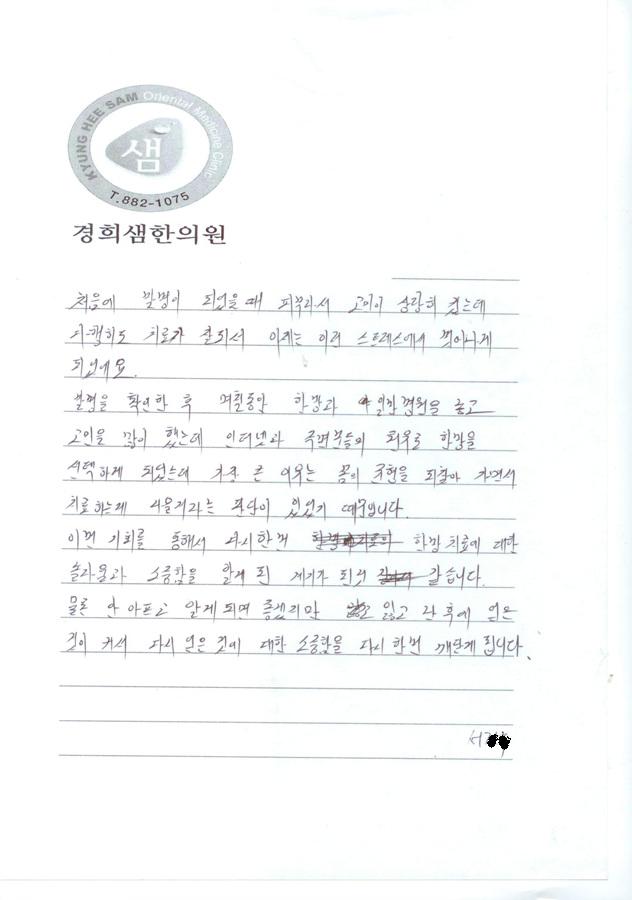 KYUNG HEE SAM Oriental Medicine Clinic
샘
T.882-1075
경희샘한의원
처음에 발병이 되었을 때 피부라서 고민이 상당히 컸는데
다행히도 치료가 잘되서 이제는 이런 스트레스에서 벗어나게
되었네요.
발병을 확인한 후 며칠동안 한방과 일반 병원을 놓고
고민을 많이 했는데 인터넷과 주변분들의 권유로 한방을
선택하게 되었는데 가장 큰 이유는 몸의 균형을 되찾아 가면서
치료하는게 새울거라는 판단이 있었기 때문입니다.
이번 기회를 통해서 다시한번 한방 치료에 대한
놀라움과 소중함을 알게 된 계기가 되었 같습니다.
물론 안 아프고 알게되면 좋겠지만 잃고 난 후에 얻은
것이 커서 다시 얻은 것에 대한 소중함을 다시 한번 깨닫게 됩니다.
서